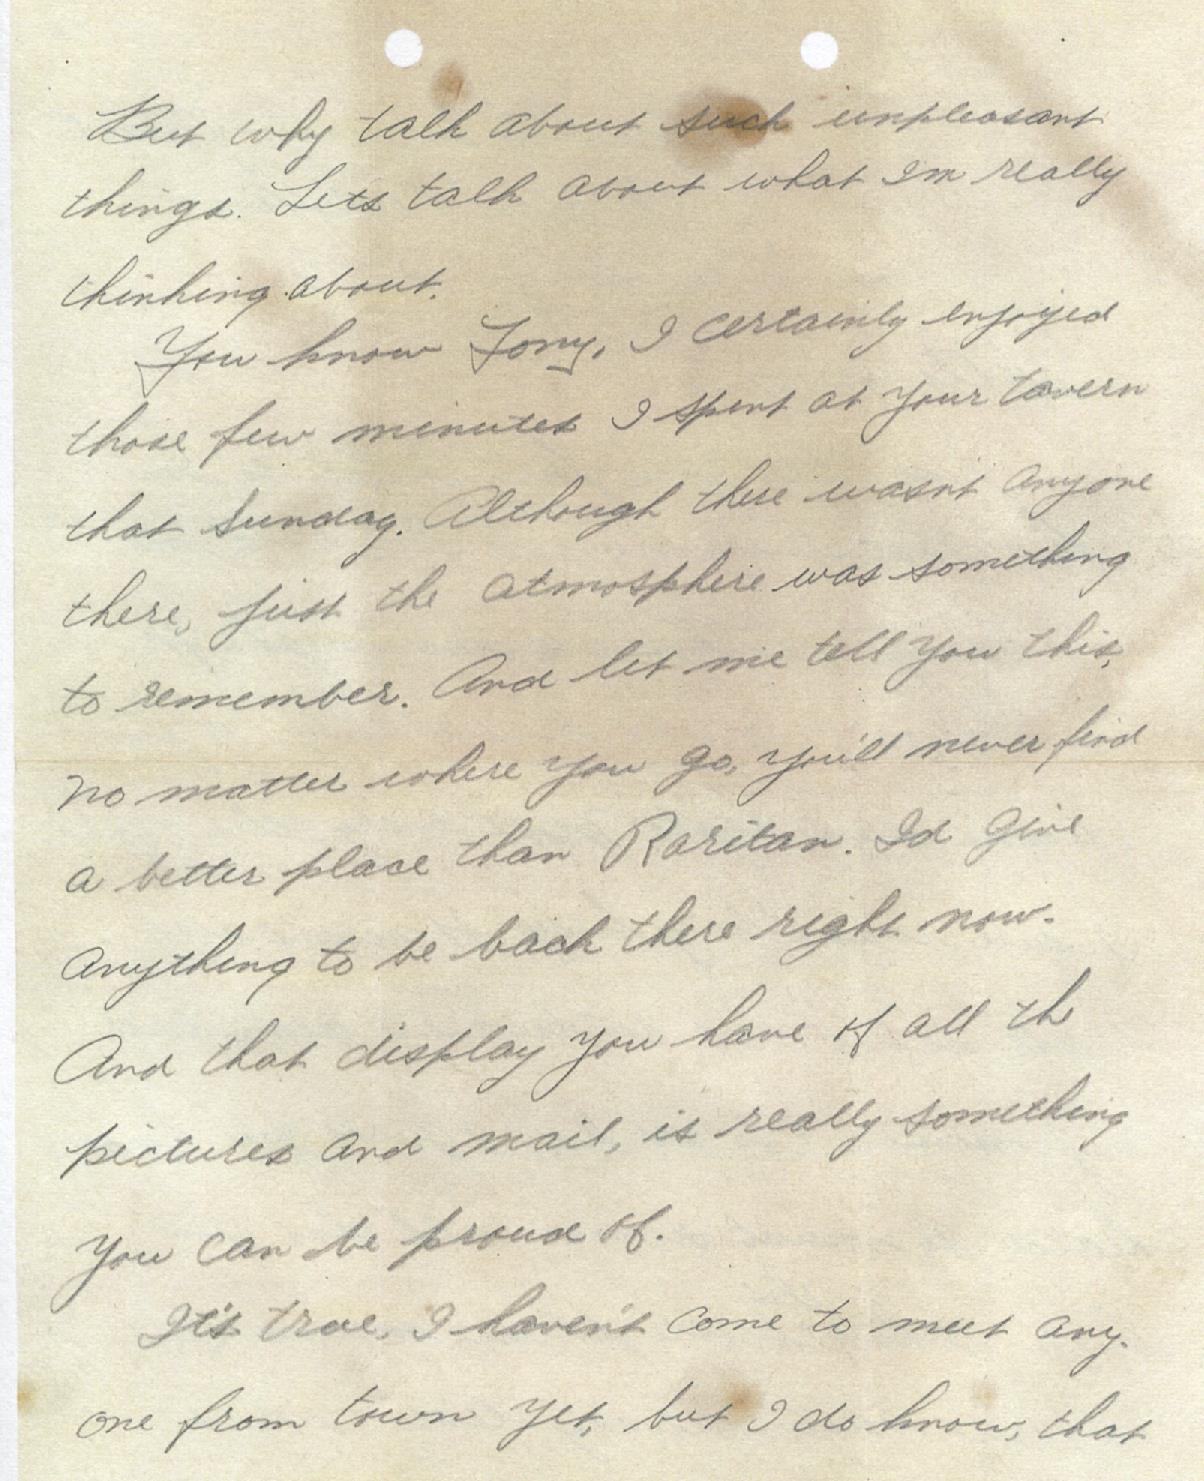 But why talk about such unpleasant
things. Lets talk about what Im really
thinking about.
You know Tony, I certainly enjoyed
those few minutes I spent at your tavern
that Sunday. Although there wasn't anyone
there, just the atmosphere was something
to remember. And let me tell you this,
no matter where you go, you'll never find
a better place than Raritan. I'd give
anything to be back there right now.
And that display you have of all th
pictures and mail, is really something
you can be proud of.
It's true, I haven't come to meet any-
one from town yet, but I do know, that